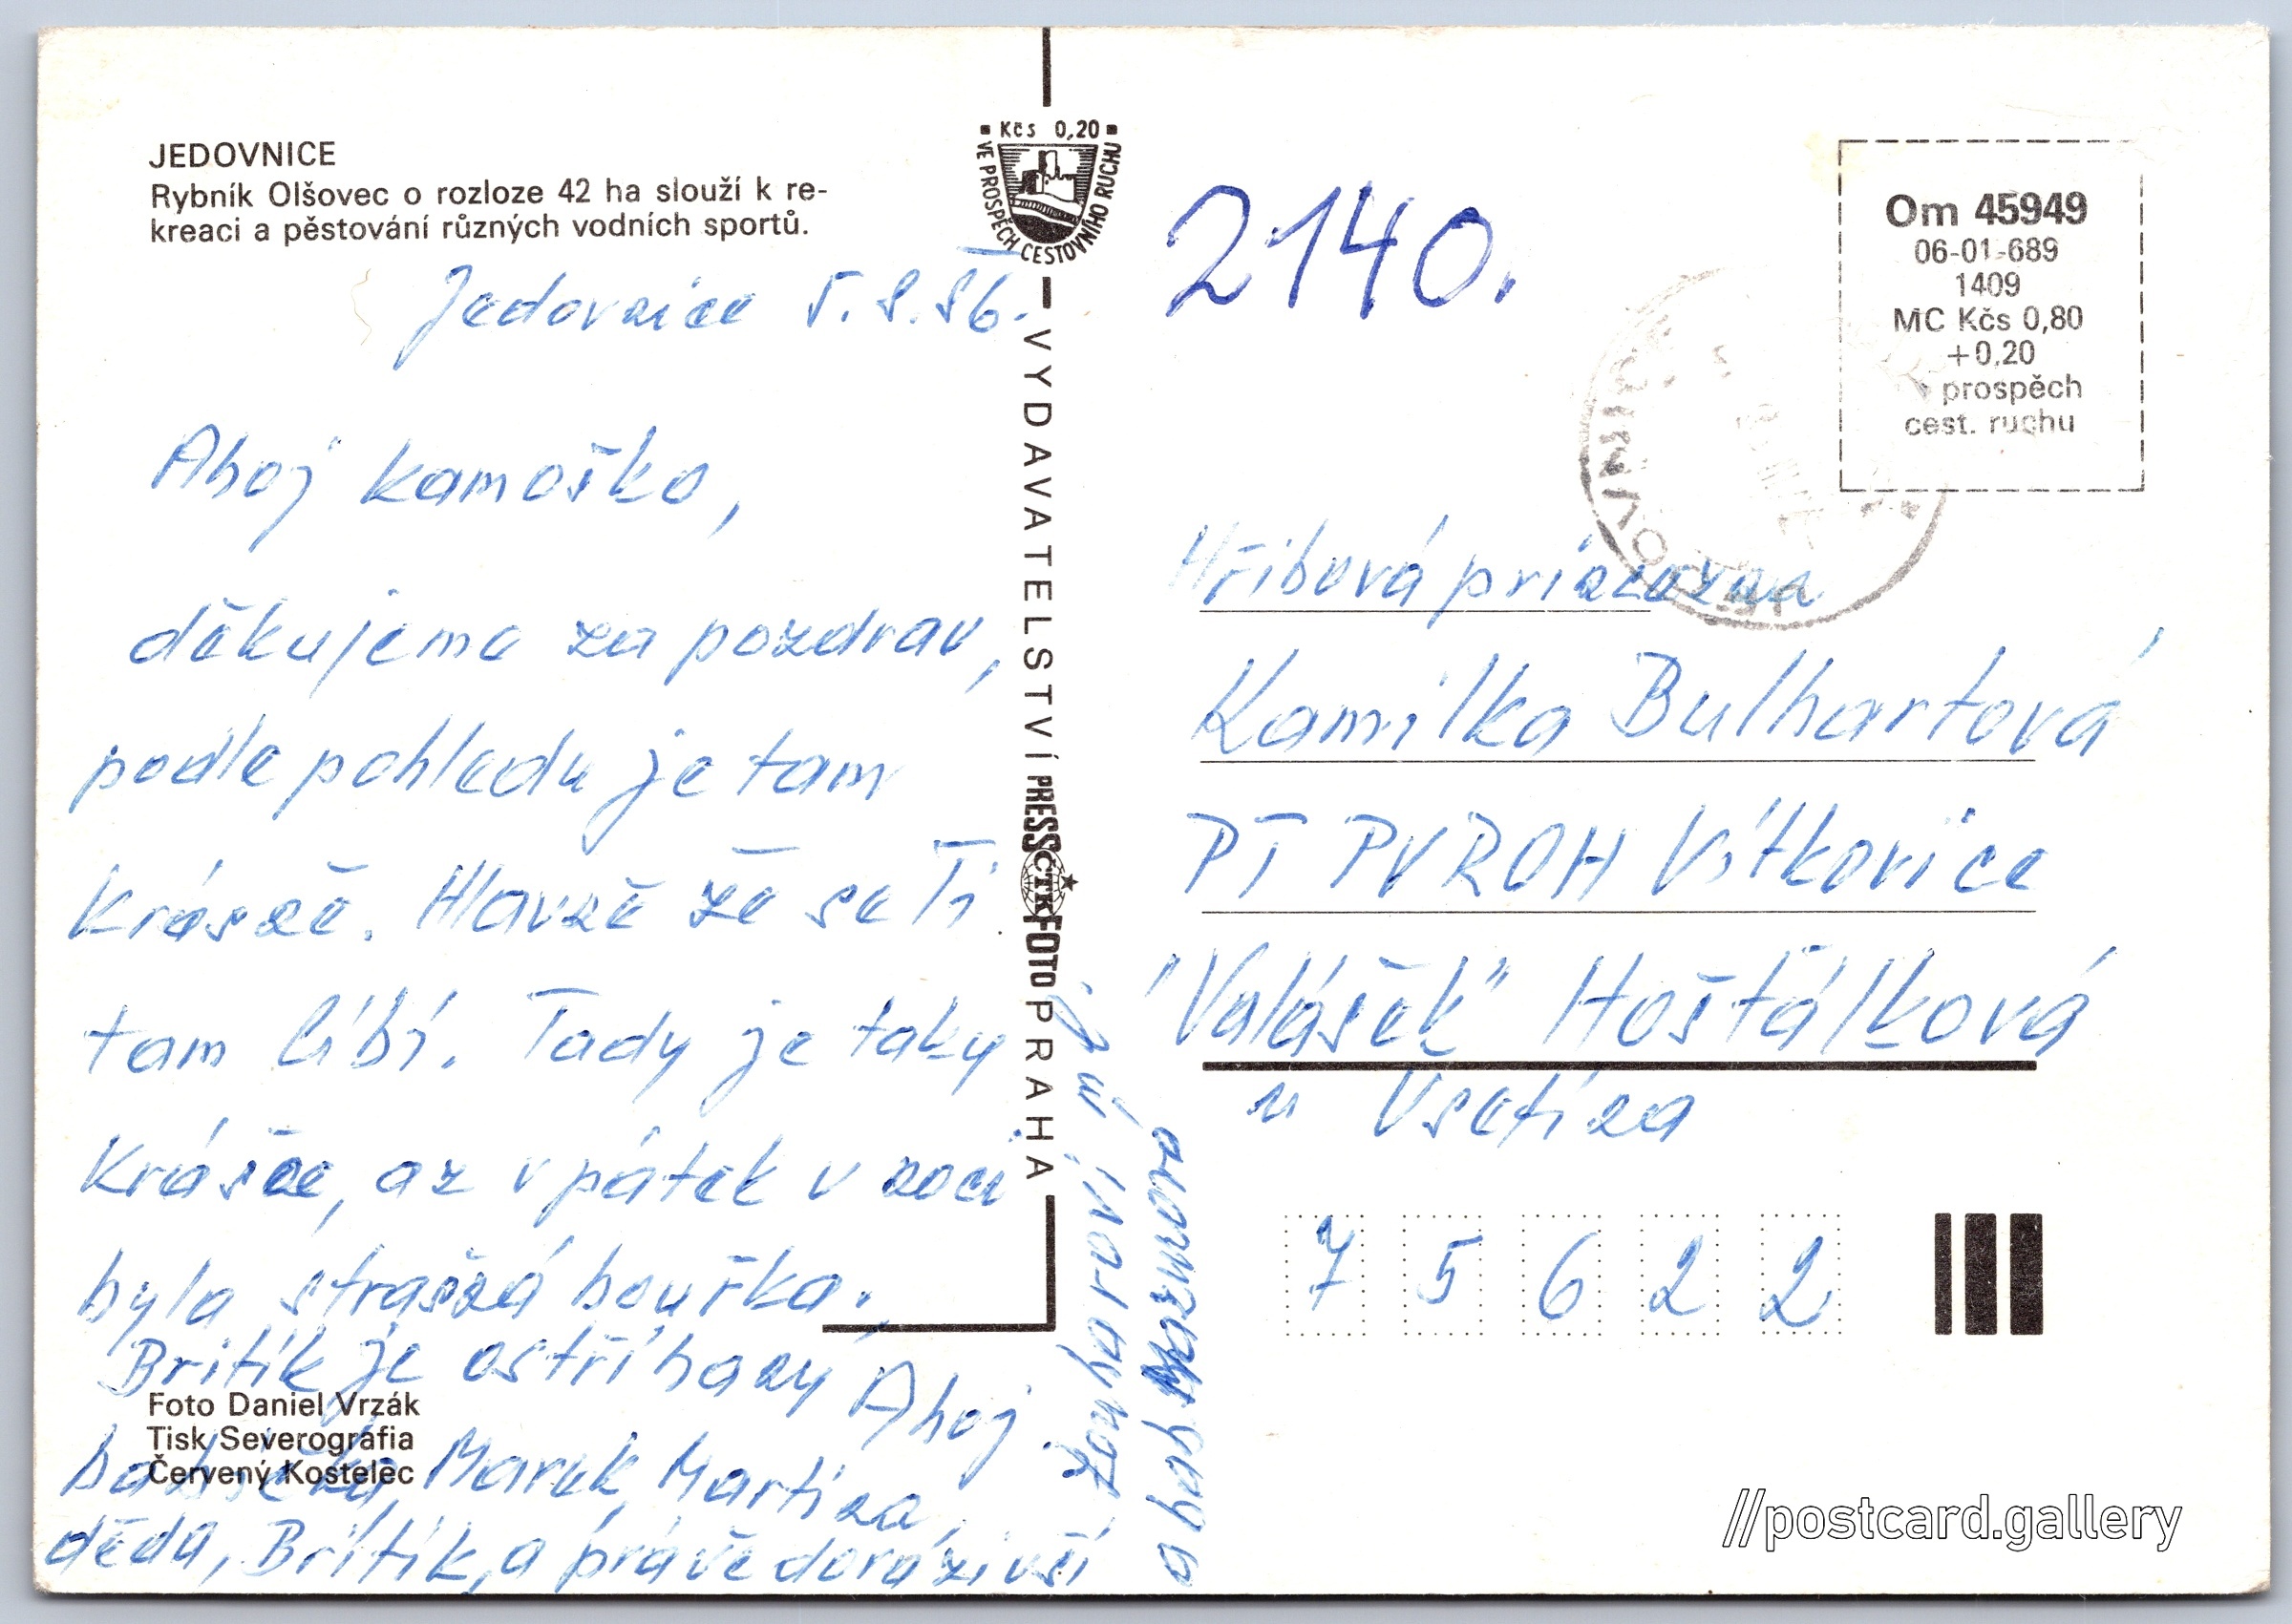 JEDOVNICE
Rybník Olšovec o rozloze 42 ha slouží k re-
kreaci a pěstování různých vodních sportů.
Jedovnice 5.8.86.
Ahoj kamoško,
děkujeme za pozdrav,
podle pohledu je tam
krásně. Hlavně že se Ti
tam líbí. Tady je taky
krásně, až v pátek v noci
byla strašná bouřka.
Britík je ostříhaný
Ahoj
babička, Marek, Martina,
děda, Britík, a právě dorazivší
Foto Daniel Vrzák
Tisk Severografia
Červený Kostelec
Kčs 0,20
VE PROSPĚCH CESTOVNÍHO RUCHU
VYDAVATELSTVÍ PRESSFOTO PRAHA
ČTK
2140.
Om 45949
06-01-689
1409
MC Kčs 0,80
+0,20
prospěch
cest. ruchu
Hříbová
Kamilka Bulhartová
PT PV ROH Vítkovice
"Valášek" Hošťálková
u Vsetína
7 5 6 2 2
//postcard.gallery